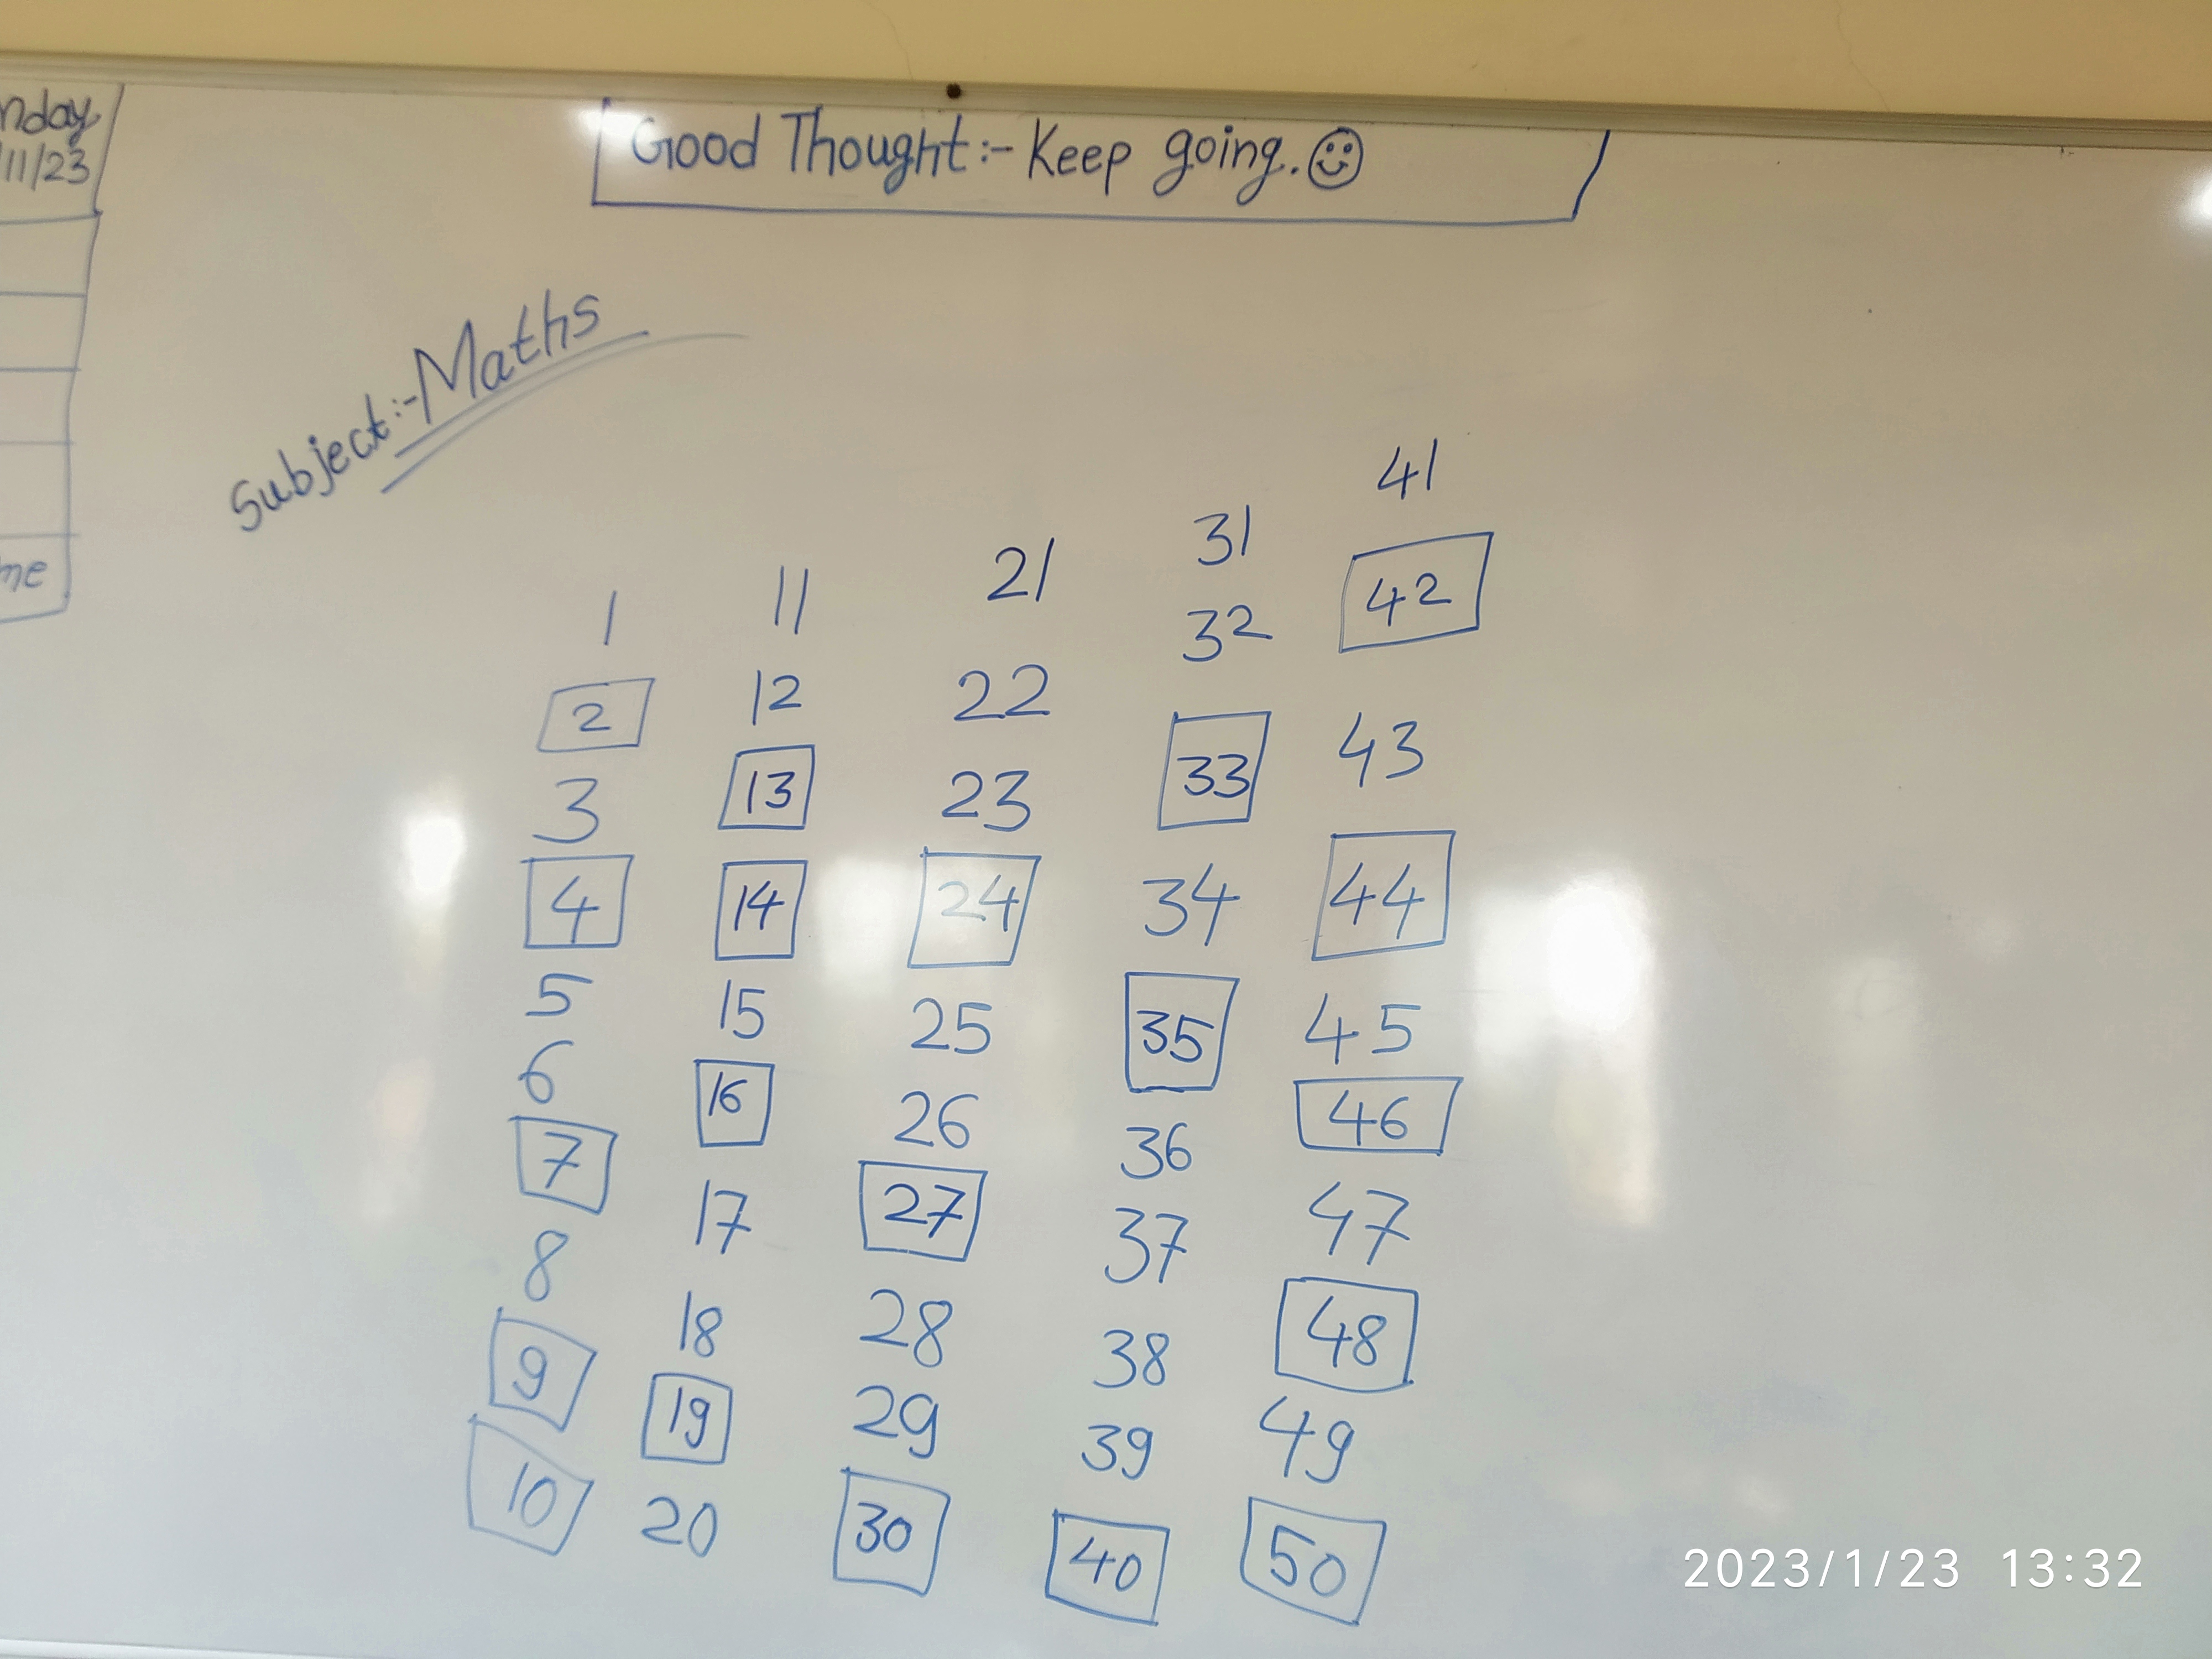 nday
11/23
me
Good Thought:- Keep going.
Subject:- Maths
1 11 21 31 41
2 12 22 32 42
3 13 23 33 43
4 14 24 34 44
5 15 25 35 45
6 16 26 36 46
7 17 27 37 47
8 18 28 38 48
9 19 29 39 49
10 20 30 40 50
2023/1/23 13:32